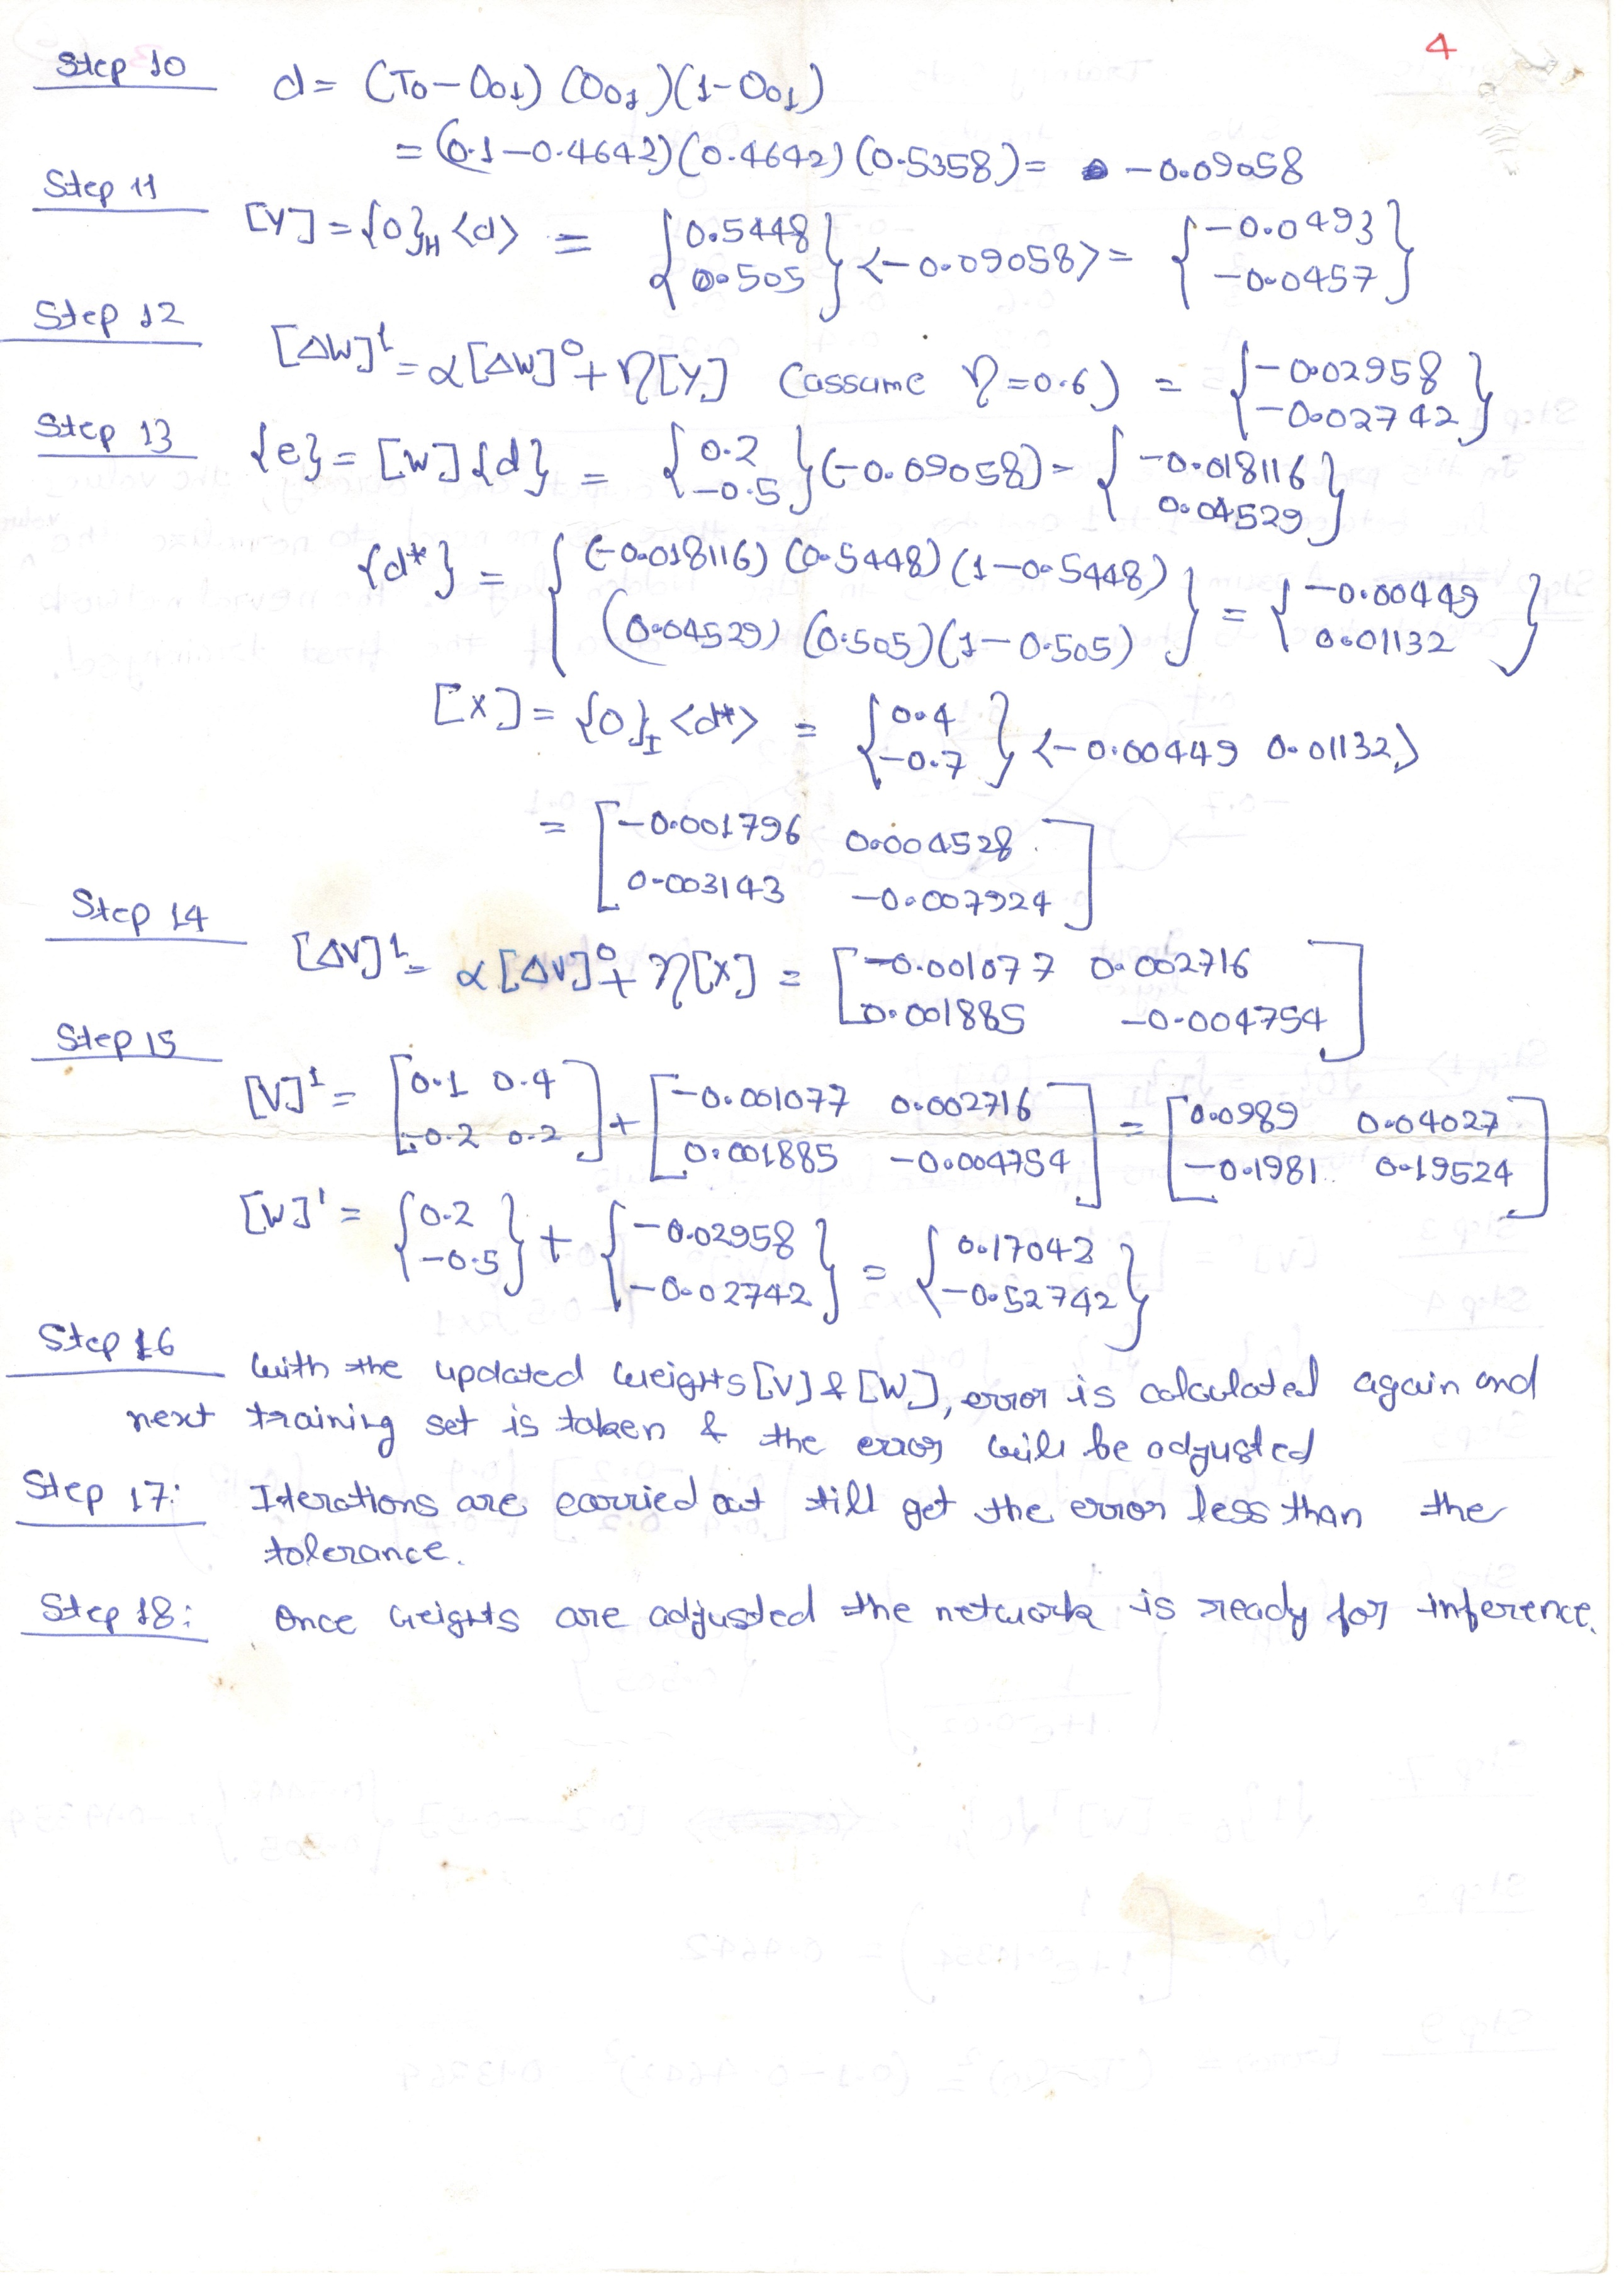 4
Step 10 d = (T₀ - O₀₁) (O₀₁)(1 - O₀₁)
= (0.1 - 0.4642)(0.4642)(0.5358) = -0.09058
Step 11 [Y] = {O}_H <d> = {0.5448 0.505} <-0.09058> = {-0.0493 -0.0457}
Step 12 [ΔW]¹ = α[ΔW]⁰ + η[Y] (assume η = 0.6) = {-0.02958 -0.02742}
Step 13 {e} = [W]{d} = {0.2 -0.5}(-0.09058) = {-0.018116 0.04529}
{d*} = {(-0.018116) (0.5448) (1-0.5448) (0.04529) (0.505)(1-0.505)} = {-0.00449 0.01132}
[X] = {O}_I <d*> = {0.4 -0.7} <-0.00449 0.01132>
= [-0.001796 0.004528
0.003143 -0.007924]
Step 14
[ΔV]¹ = α[ΔV]⁰ + η[X] = [-0.001077 0.002716
0.001885 -0.004754]
Step 15
[V]¹ = [0.1 0.4 -0.2 0.2] + [-0.001077 0.002716 0.001885 -0.004754] = [0.0989 0.04027 -0.1981 0.19524]
[W]¹ = {0.2 -0.5} + {-0.02958 -0.02742} = {0.17042 -0.52742}
Step 16 with the updated weights [V] & [W], error is calculated again and
next training set is taken & the error will be adjusted
Step 17: Iterations are carried out till get the error less than the
tolerance.
Step 18: Once weights are adjusted the network is ready for inference.